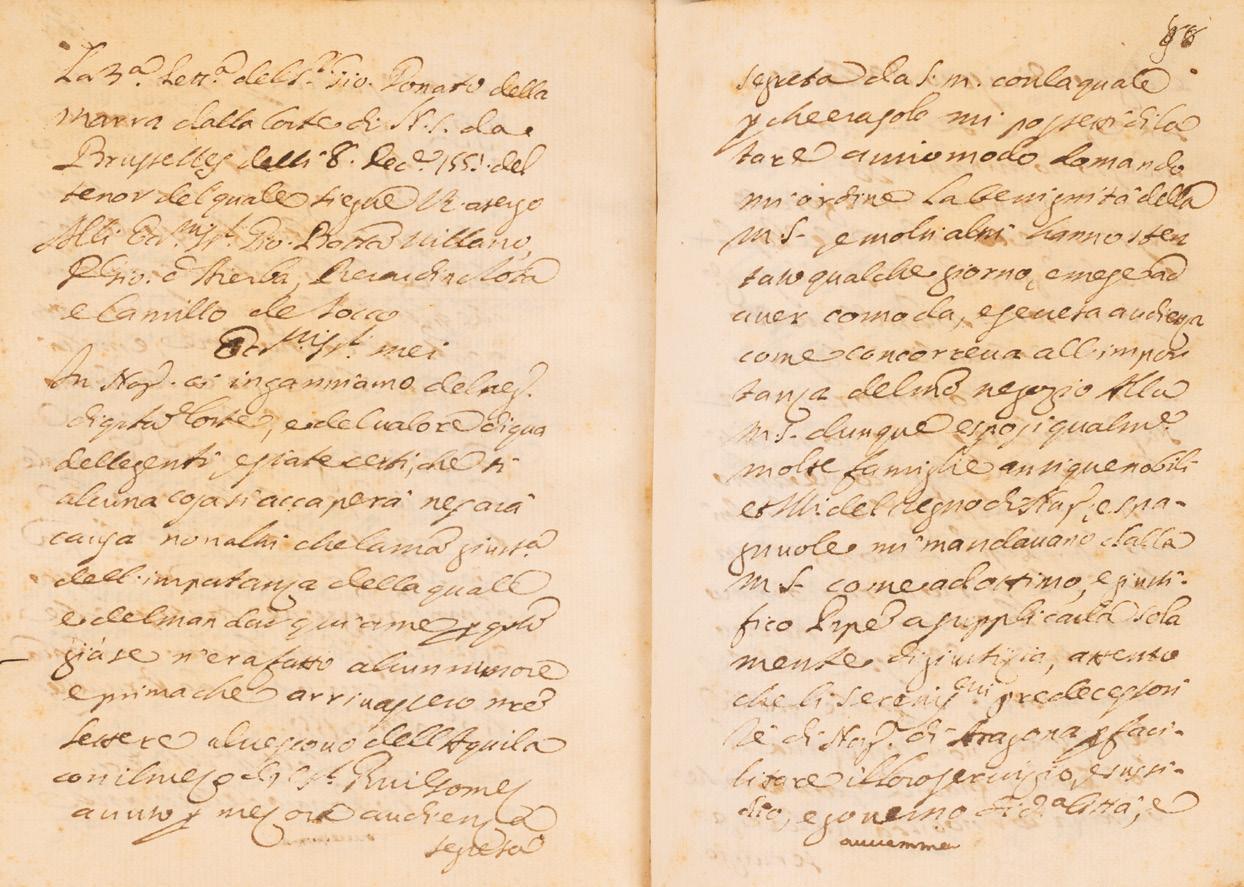 La 3.ª Lett.ª del S.r Gio. Donato della
marra dalla Corte di N. S. da
Brusselles delli 8. Dec.e 155 . del
tenor del quale siegue
Alli Ecc.mi Sig.ri Gio. Batta Villano,
Gio. d'Aierba, Mota
e Camillo de Tocco
Ecc.mi Sig.ri mei
In Nap. ci inganniamo del neg.
di q.sta Corte, e del valore di qua
delle genti e siate certi, che si
alcuna cosa si accaperà ne sarà
causa non altri che la mera giust.a
dell'importanza della quale
e del mandar qui a me p q.sto
già se n'era fatto alcun rumore
e prima che arrivassero n're
lettere al vescovo dell'Aquila
con il mezo del S.r Ruil Gomes
avuto p mez'ora audienza
segreta
88
segreta da S. M. con la quale
p che era solo mi possetti dila
tare a mio modo domando
mi ordine La benignità della
M. S. e molti altri hanno sten
tato qualche giorno, e mese ad
aver comoda, e secreta audienza
come concorreva all'impor
tanza del n'ro negozio Alla
M. S. dunque esposi qualm.e
molte famiglie antique nobili
et Ill.i del Regno di Nap. e spa-
gnuole mi mandavano dalla
M. S. come ad ottimo, e giusti-
fico Prpe a supplicarla sola
mente di giustizia, attento
che li Sereniss.mi predecessori
Rè di Nap. di Aragona p faci-
litare il loro servizio, e sussi-
dio, e governo di d.ª Città, e